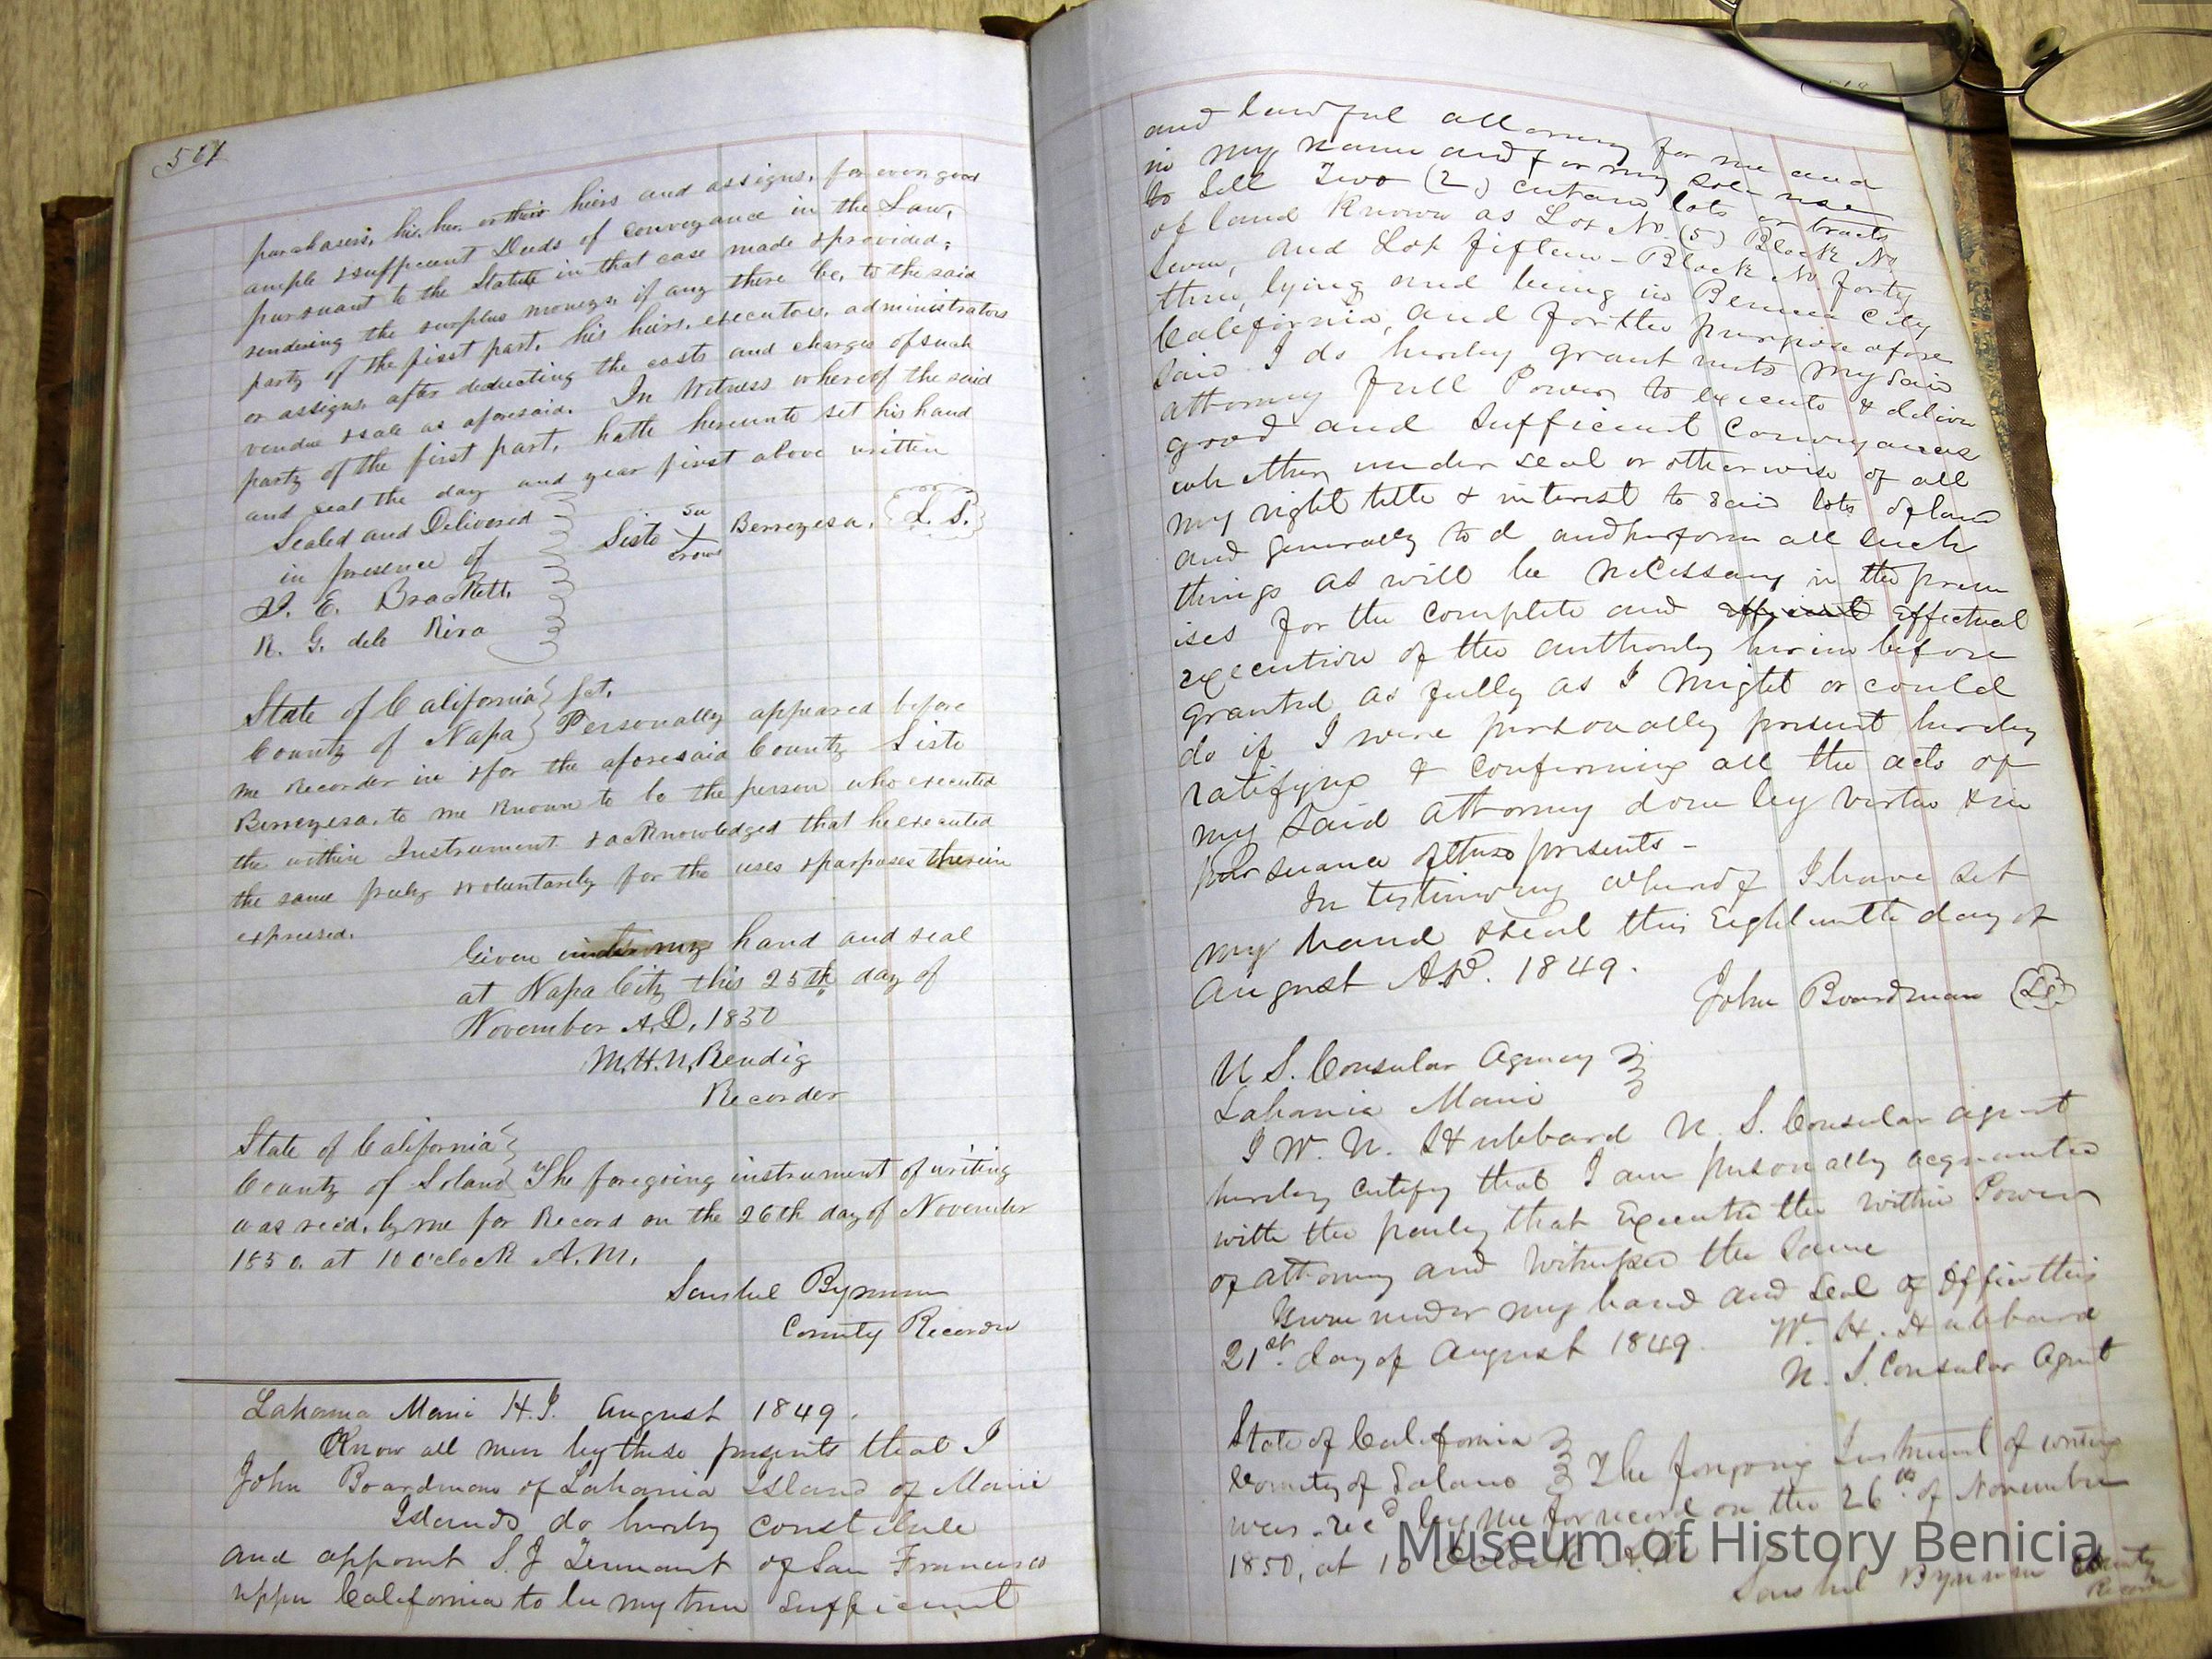 567
purchasers, his, her, or their hiers and assigns, forever, good
ample & suffucent Deeds of conveyance in the Law,
pursuant to the Statute in that case made & provided;
rendering the surplus moneys, if any there be, to the said
party of the first part, his heirs, executors, administrators
or assigns, after deducting the costs and charges of such
vendue & sale as aforesaid. In Witness whereof the said
party of the first part, hath hereunto set his hand
and seal the day and year first above written
Sealed and Delivered
in presence of
J. E. Brackett
R. G. dela Riva
Sisto su X crows Berreyesa. (L. S.)
State of California } sct.
County of Napa } Personally appeared before
me Recorder in & for the aforesaid County Sisto
Berreyesa, to me known to be the person who executed
the within Instrument & acknowledged that he executed
the same freely & voluntarily for the uses & purposes therein
expressed.
Given under my hand and seal
at Napa City this 25th day of
November A.D. 1850
M.H.N. Rendig
Recorder
State of California }
County of Solano } The foregoing instrument of writing
was recd. by me for Record on the 26th day of November
1850. at 10 o'clock A.M.
Sanshel Bynum
County Recorder
Lahaina Maui H.I. August 1849.
Know all men by these presents that I
John Boardman of Lahania Island of Maui
Islands do hereby constitute
and appoint S. J Tennant of San Francisco
upper California to be my true sufficient
and lawful attorney for me and
in my name and for my sole use
to Sell Two (2) certain lots or tracts
of land known as Lot No. (5) Block No
Seven, and Lot fifteen - Block No forty
three, lying and being in Benicia City
California, and for the purpose afore
said I do hereby grant unto my said
attorney full Power to execute & deliver
good and sufficient Conveyances
whether under seal or otherwise of all
my right title & interest to said lots of land
and generally to d and perform all such
things as will be necessary in the prem
ises for the complete and efficient effectual
execution of the authority herein before
granted as fully as I might or could
do if I were personally present hereby
ratifying & confirming all the acts of
my said attorney done by virtue & in
pursuance of these presents -
In testimony whereof I have set
my hand & seal this Eighteenth day of
August A.D. 1849.
John Boardman (L.S.)
U S. Consular Agency
Lahania Maui
I W. N. Hubbard U. S. Consular agent
hereby certify that I am personally acquainted
with the party that Executed the within Power
of attorney and witnessed the same
Given under my hand and Seal of Office this
21st. day of August 1849. W. H. Hubbard
U. S. Consular Agent
State of California
County of Solano } The foregoing Instrument of writing
was recd by me for record on the 26th of November
1850, at 10 Oclock A.M
Sanshel Bynum County
Recorder
Museum of History Benicia